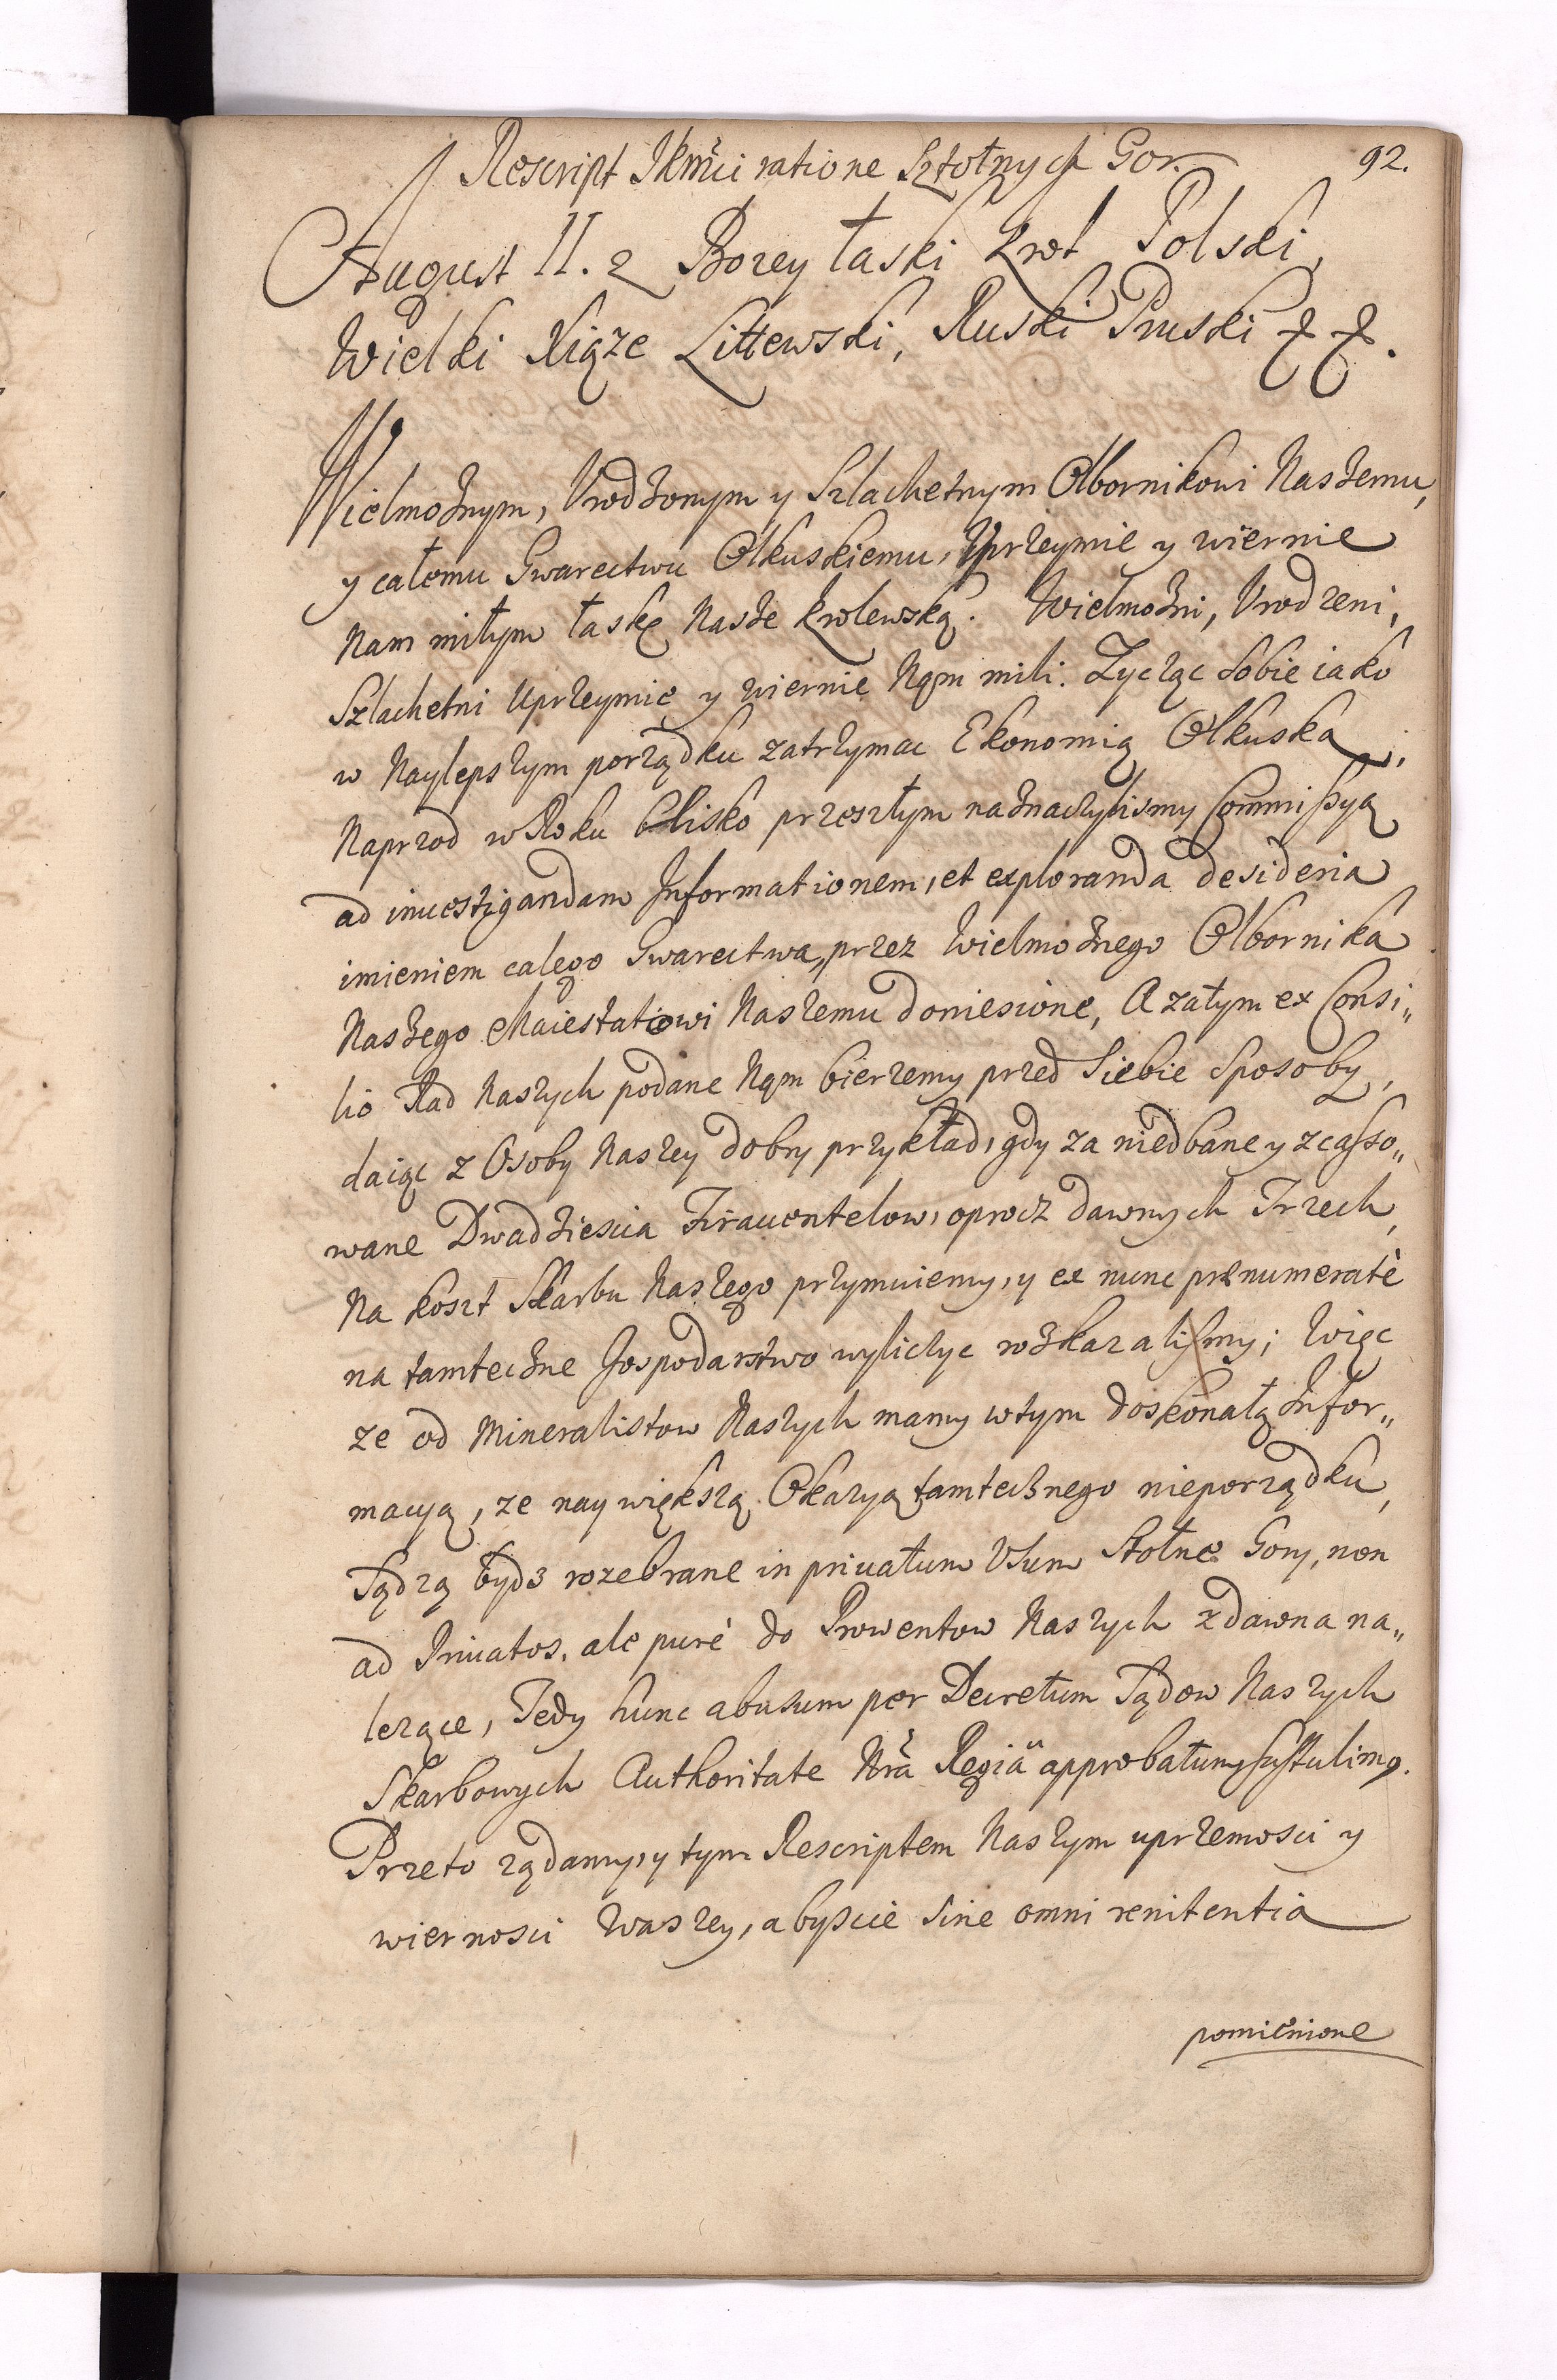 Rescript JKMci ratione Sztolnych Gor.
92.
August II. z Bozey łaski Krol Polski,
Wielki Xiąze Littewski, Ruski Pruski &&.
Wielmożnym, Urodzonym y Szlachetnym Olbornikowi Naszemu,
y całemu Gwarectwu Olkuskiemu, Uprzeymie y wiernie
Nam miłym łaskę Nasze Krolewską. Wielmożni, Urodzeni,
Szlachetni Uprzeymie y wiernie Nąm mili. Zycząc sobie iako
w Naylepszym porządku zatrzymac Ekonomią Olkuska,
Naprzod w Roku blisko przeszłym naznaczylismy Commissyą
ad inuestigandam Informationem, et exploranda desideria
imieniem całego Gwarectwa, przez Wielmożnego Olbornika
Naszego Maiestatowi Naszemu doniesione, A zatym ex Consi„
lio Rad Naszych podane Nąm bierzemy przed Siebie Sposoby,
daiąc z Osoby Naszey dobry przykład, gdy za niedbane y zcasso„
wane Dwadziescia Firauentelow, oprocz dawnych Trzech,
Na koszt Skarbu Naszego przymuiemy, y ex nunc prænumeratè
na tamteczne Gospodarstwo wyliczyc rozkazalismy; Więc
ze od Mineralistow Naszych mamy wtym doskonałą Infor„
macyą, ze naywiększą Okazyą tamtecznego nieporządku,
Sądzą bydz rozebrane in priuatum Usum Stolne Gory, non
ad Priuatos, ale purè do Prowentow Naszych zdawna na„
lezące, Tedy hunc abusum per Decretum Sądow Naszych
Skarbowych Authoritate Nra Regiâ approbatum sustulimg.
Przeto ządamy, y tym Rescriptem Naszym uprzemosci y
wiernosci Waszey, abyscie sine omni renitentia
pomienione